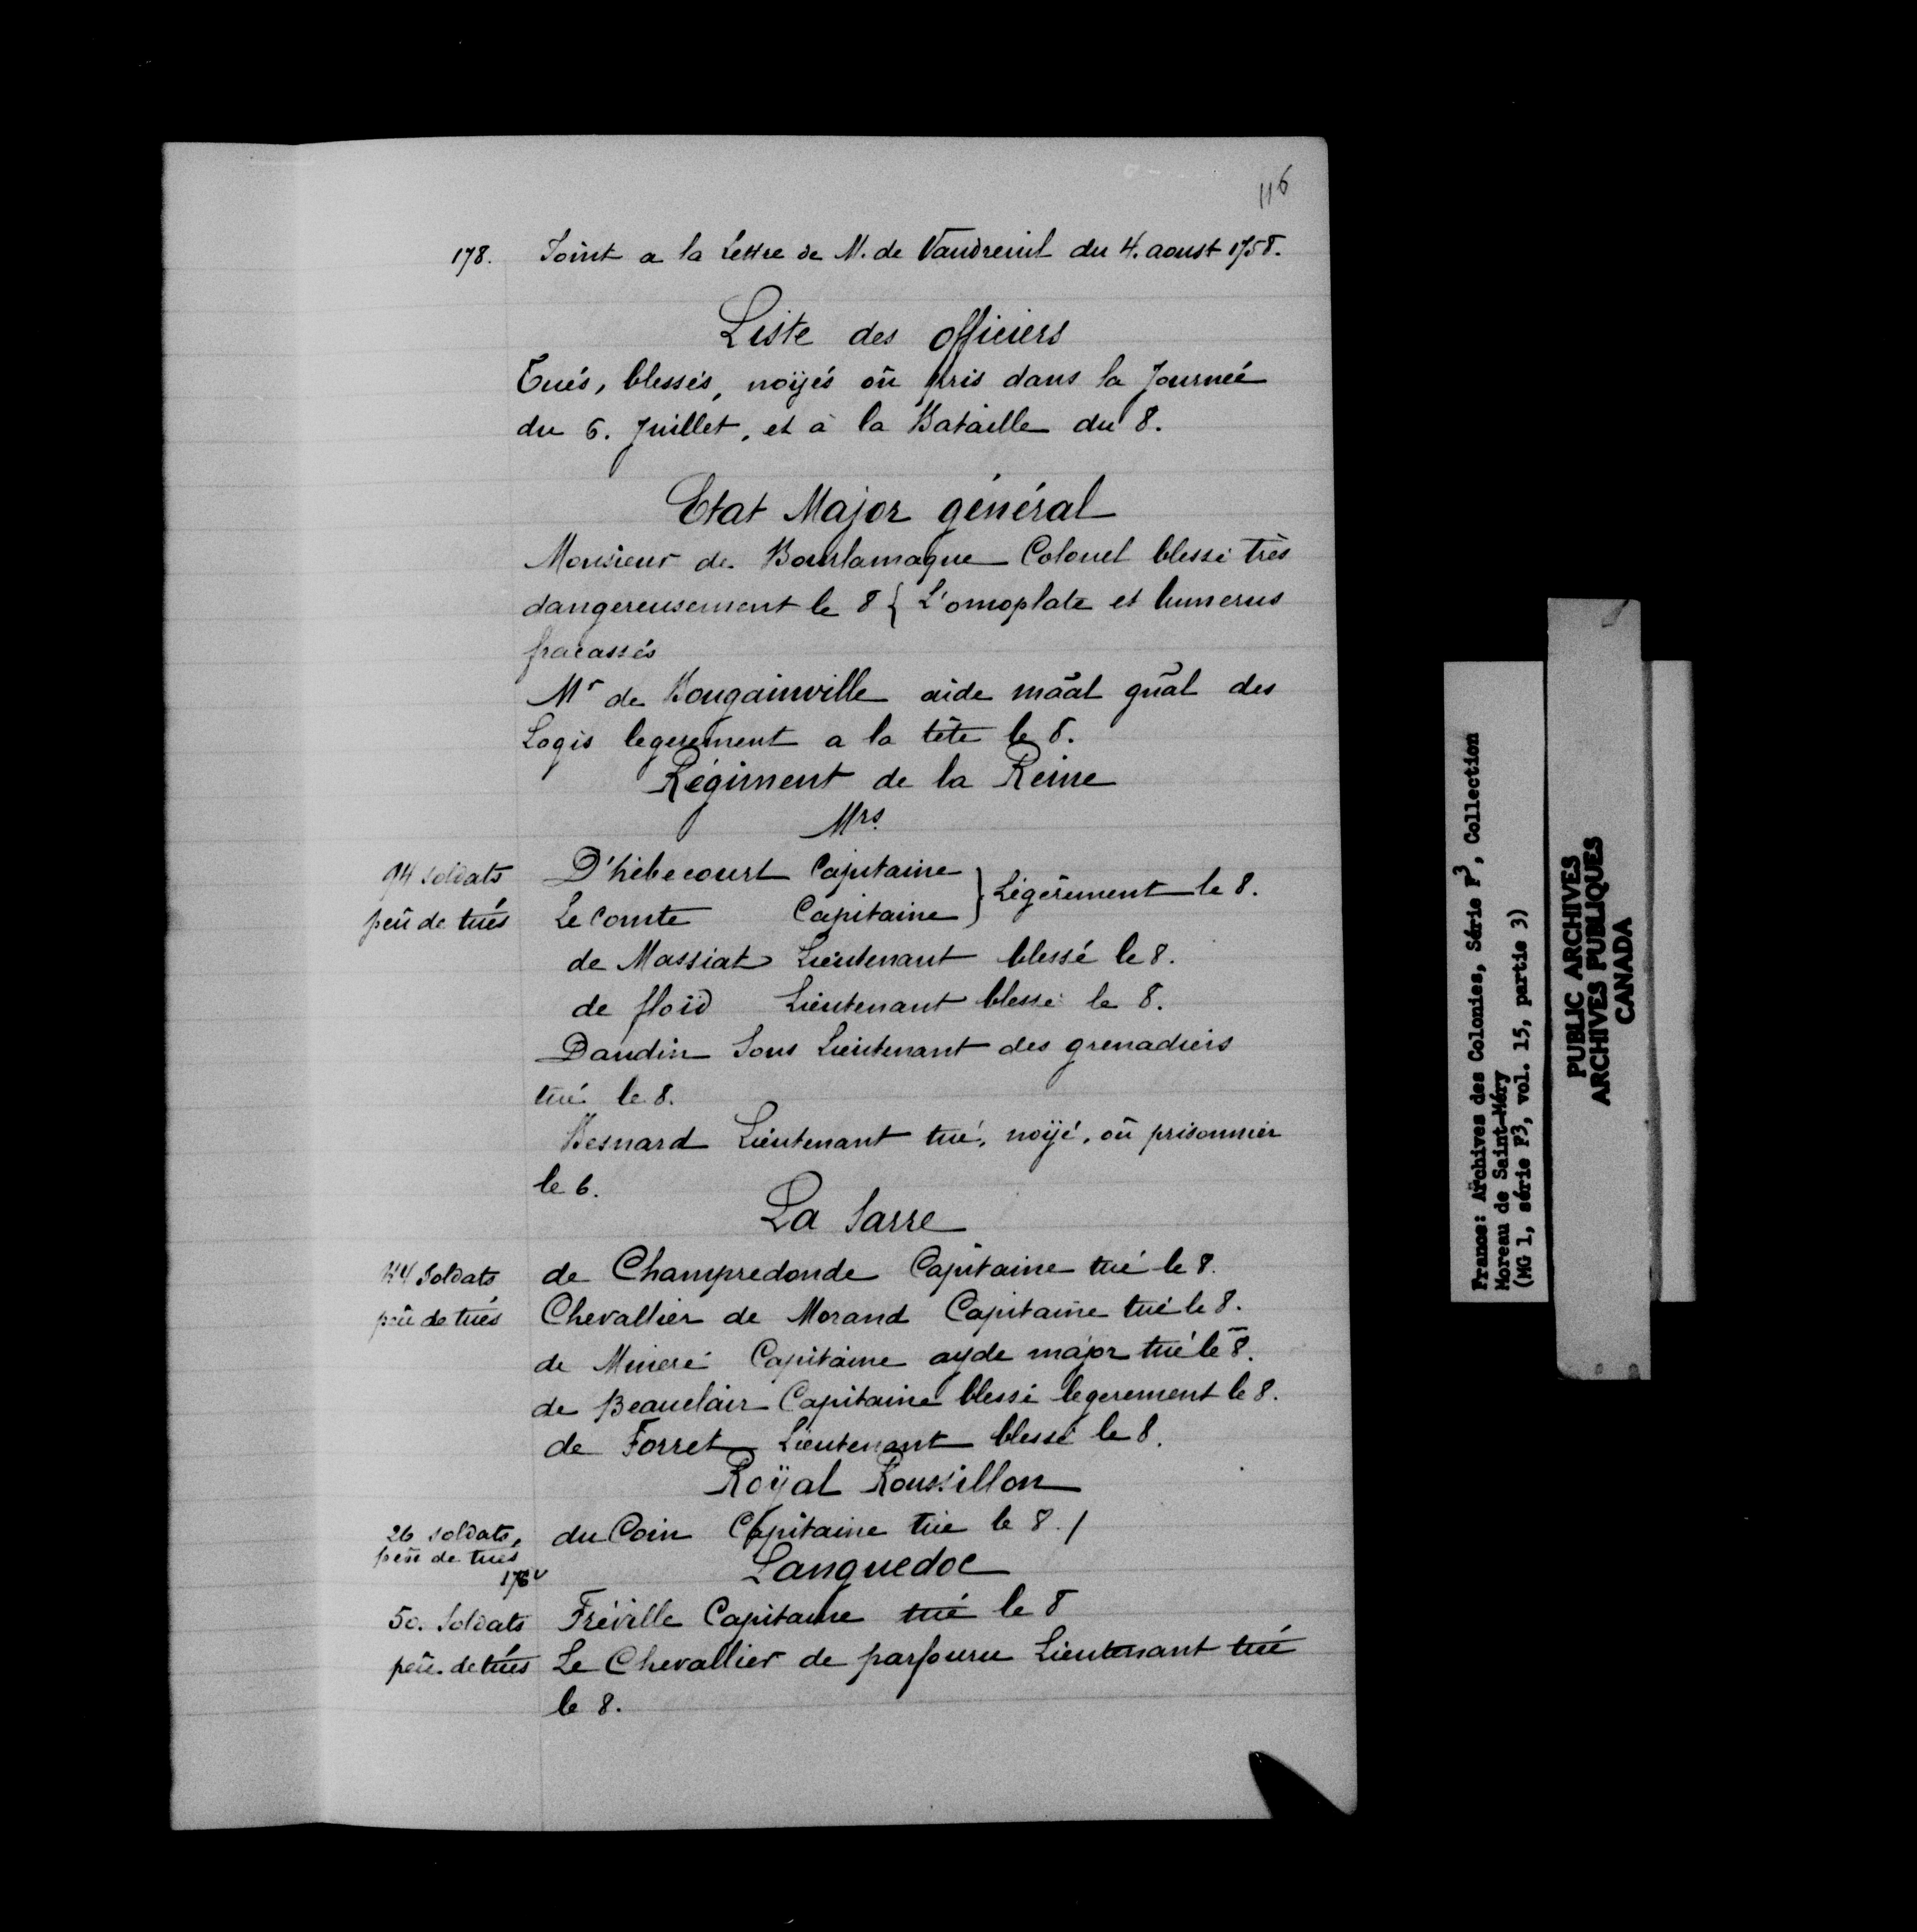 116
178. Joint a la Lettre de M. de Vaudreuil du 4. aoust 1758.
Liste des officiers
Tués, blessés, noÿés oû pris dans la Journeé
du 6. Juillet, et à la Bataille du 8.
Etat Major général
Monsieur de Bourlamaque Colonel blessé très
dangereusement le 8 { L'omoplate et humerus
fracassés
Mr de Bougainville aide māal gn̄al des
Logis legerement a la tête le 8.
Régiment de la Reine
Mrs.
94 soldats D'hébécourt Capitaine } Légèrement le 8.
peû de tués Le Comte Capitaine
de Massiat Lieutenant blessé le 8.
de floïd Lieutenant blessé le 8.
Daudin Sous Lieutenant des grenadiers
tué le 8.
Besnard Lieutenant tué, noÿé, oû prisonnier
le 6.
La Sarre
44 Soldats de Champredonde Capitaine tué le 8.
peû de tués Chevallier de Morand Capitaine tué le 8.
de Mineré Capitaine ayde major tué le 8.
de Beauclair Capitaine blessé legerement le 8.
de Forret Lieutenant blessé le 8.
Roÿal Roussillon
26 soldats, du Coin Capitaine tué le 8. /
peû de tués
178v Languedoc
50. Soldats Fréville Capitaine tué le 8
peû de tués Le Chevallier de parfouru Lieutenant tué
le 8.
France: Archives des Colonies, Série F3, Collection
Moreau de Saint-Méry
(MG 1, série F3, vol. 15, partie 3)
PUBLIC ARCHIVES
ARCHIVES PUBLIQUES
CANADA